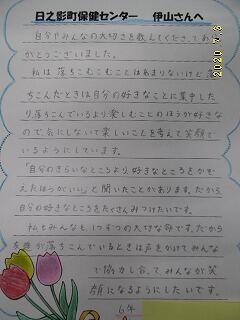 日之影町保健センター 伊山さんへ
自分やみんなの大切さを教えてくださってあり
がとうございました。
私は落ちこむことはあまりないけど落
ちこんだときは自分の好きなことに集中した
り落ちこんでいるより楽しむことのほうが好きな
ので気にしないで楽しいことを考えて笑顔で
いるようにしています。
「自分のきらいなところより好きなところをかぞ
えたほうがいい。」と聞いたことがあります。だから
自分の好きなところをたくさんみつけたいです。
私もみんなも、1つずつの大切な命です。だから
友達が落ちこんでいるときは声をかけてみんな
で協力し合って、みんなが笑
顔になるようにしたいです。
6年
2020 7 6